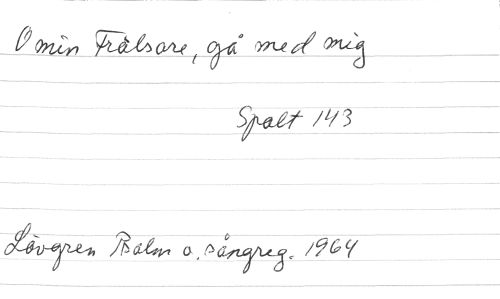 O min Frälsare, gå med mig
Spalt 143
Lövgren Psalm o. sångreg. 1964